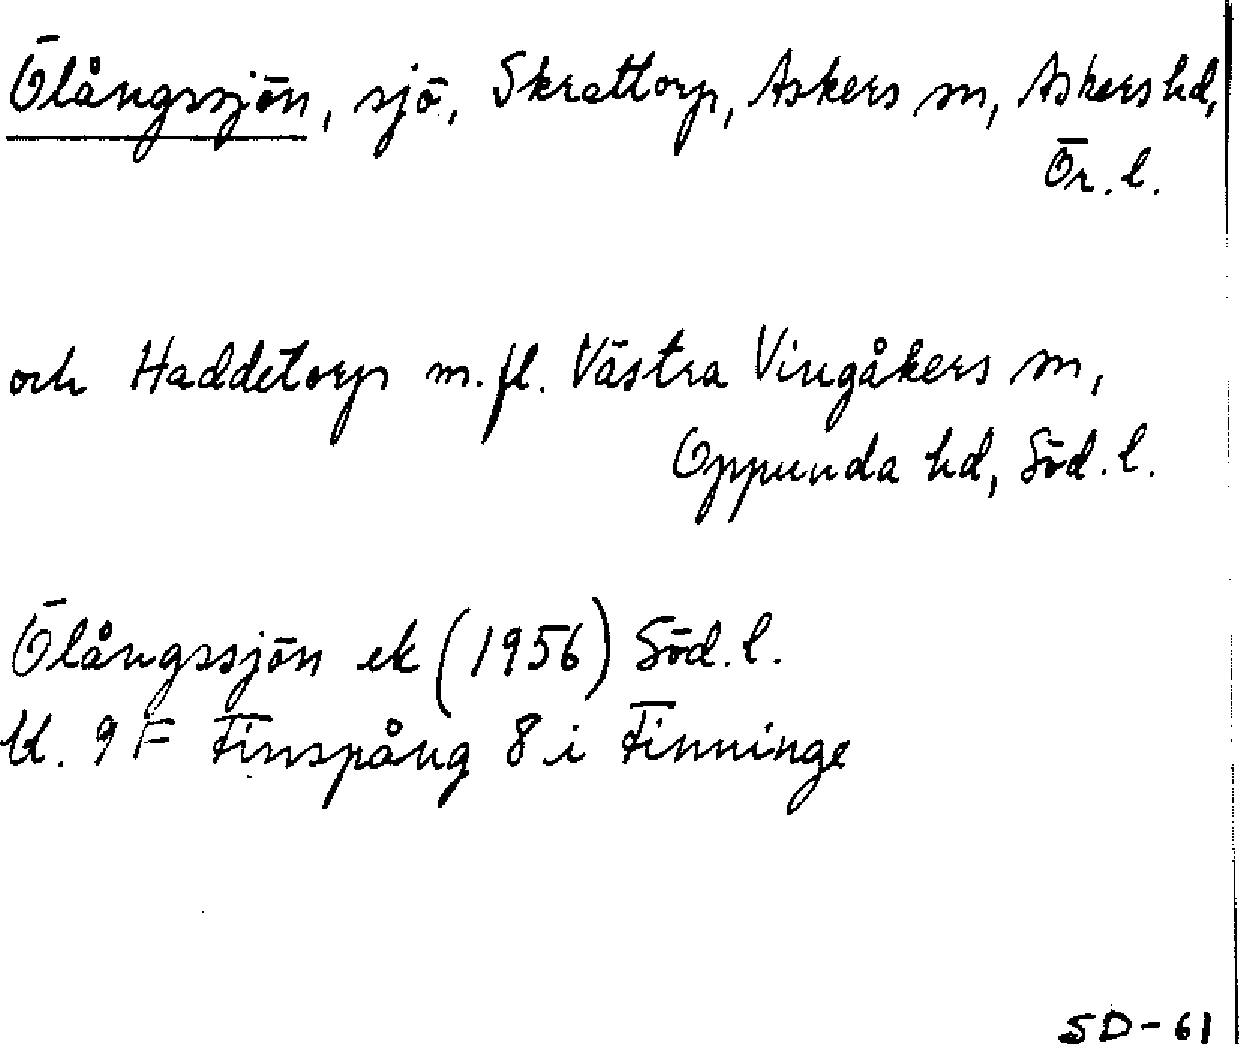 Ölångssjön, sjö, Skrattorp, Askers sn, Askers hd,
Ör. l.
och Haddetorp m.fl. Västra Vingåkers sn,
Oppunda hd, Söd. l.
Ölångssjön ek (1956) Söd. l.
bl. 9 F Finspång 8 i Finninge
SD-61